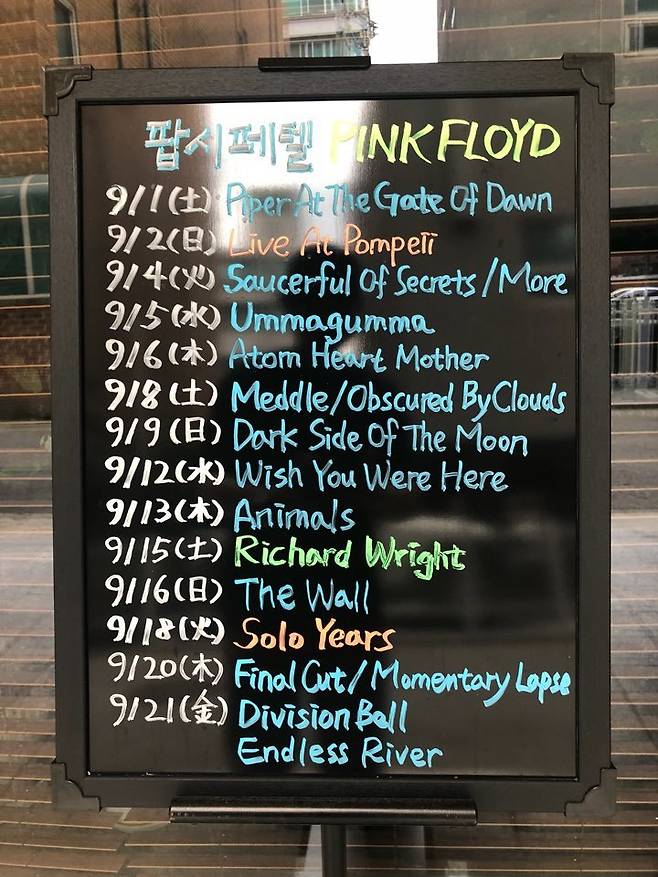 팝시페텔 PINK FLOYD
9/1(土) Piper At The Gate Of Dawn
9/2(日) Live At Pompeii
9/4(火) Saucerful Of Secrets/More
9/5(水) Ummagumma
9/6(木) Atom Heart Mother
9/8(土) Meddle/Obscured By Clouds
9/9(日) Dark Side Of The Moon
9/12(水) Wish You Were Here
9/13(木) Animals
9/15(土) Richard Wright
9/16(日) The Wall
9/18(火) Solo Years
9/20(木) Final Cut/Momentary Lapse
9/21(金) Division Bell
Endless River